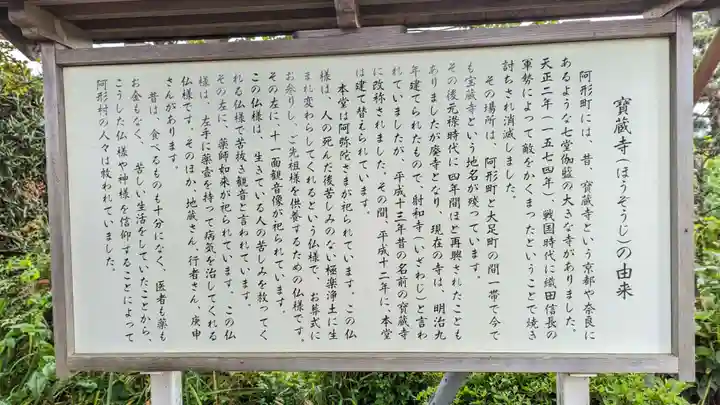 寶蔵寺(ほうぞうじ)の由来
阿形町には、昔、寶蔵寺という京都や奈良に
あるような七堂伽藍の大きな寺がありました。
天正二年(一五七四年)戦国時代に織田信長の
軍勢によって敵をかくまったということで焼き
討ちされ消滅しました。
その場所は、阿形町と大足町の間一帯で今で
も宝蔵寺という地名が残っています。
その後元禄時代に四年間ほど再興されたことも
ありましたが廃寺となり、現在の寺は、明治九
年建てられたもので、射和寺(いざわじ)と言わ
れていましたが、平成十三年昔の名前の寶蔵寺
に改称されました。その間、平成十二年に、本堂
は建て替えられています。
本堂は阿弥陀さまが祀られています。この仏
様は、人の死んだ後苦しみのない極楽浄土に生
まれ変わらしてくれるという仏様で、お葬式に
お参りし、ご先祖様を供養するための仏様です。
その左に、十一面観音像が祀られています。
この仏様は、生きている人の苦しみを救ってく
れる仏様で苦抜き観音と言われています。
その左に、薬師如来が祀られています。この仏
様は、左手に薬壺を持って病気を治してくれる
仏様です そのほか、地蔵さん、行者さん、庚申
さんがあります。
昔は、食べるものも十分になく、医者も薬も
お金もなく、苦しい生活をしていたことから、
こうした仏様や神様を信仰することによって
阿形村の人々は救われていました。